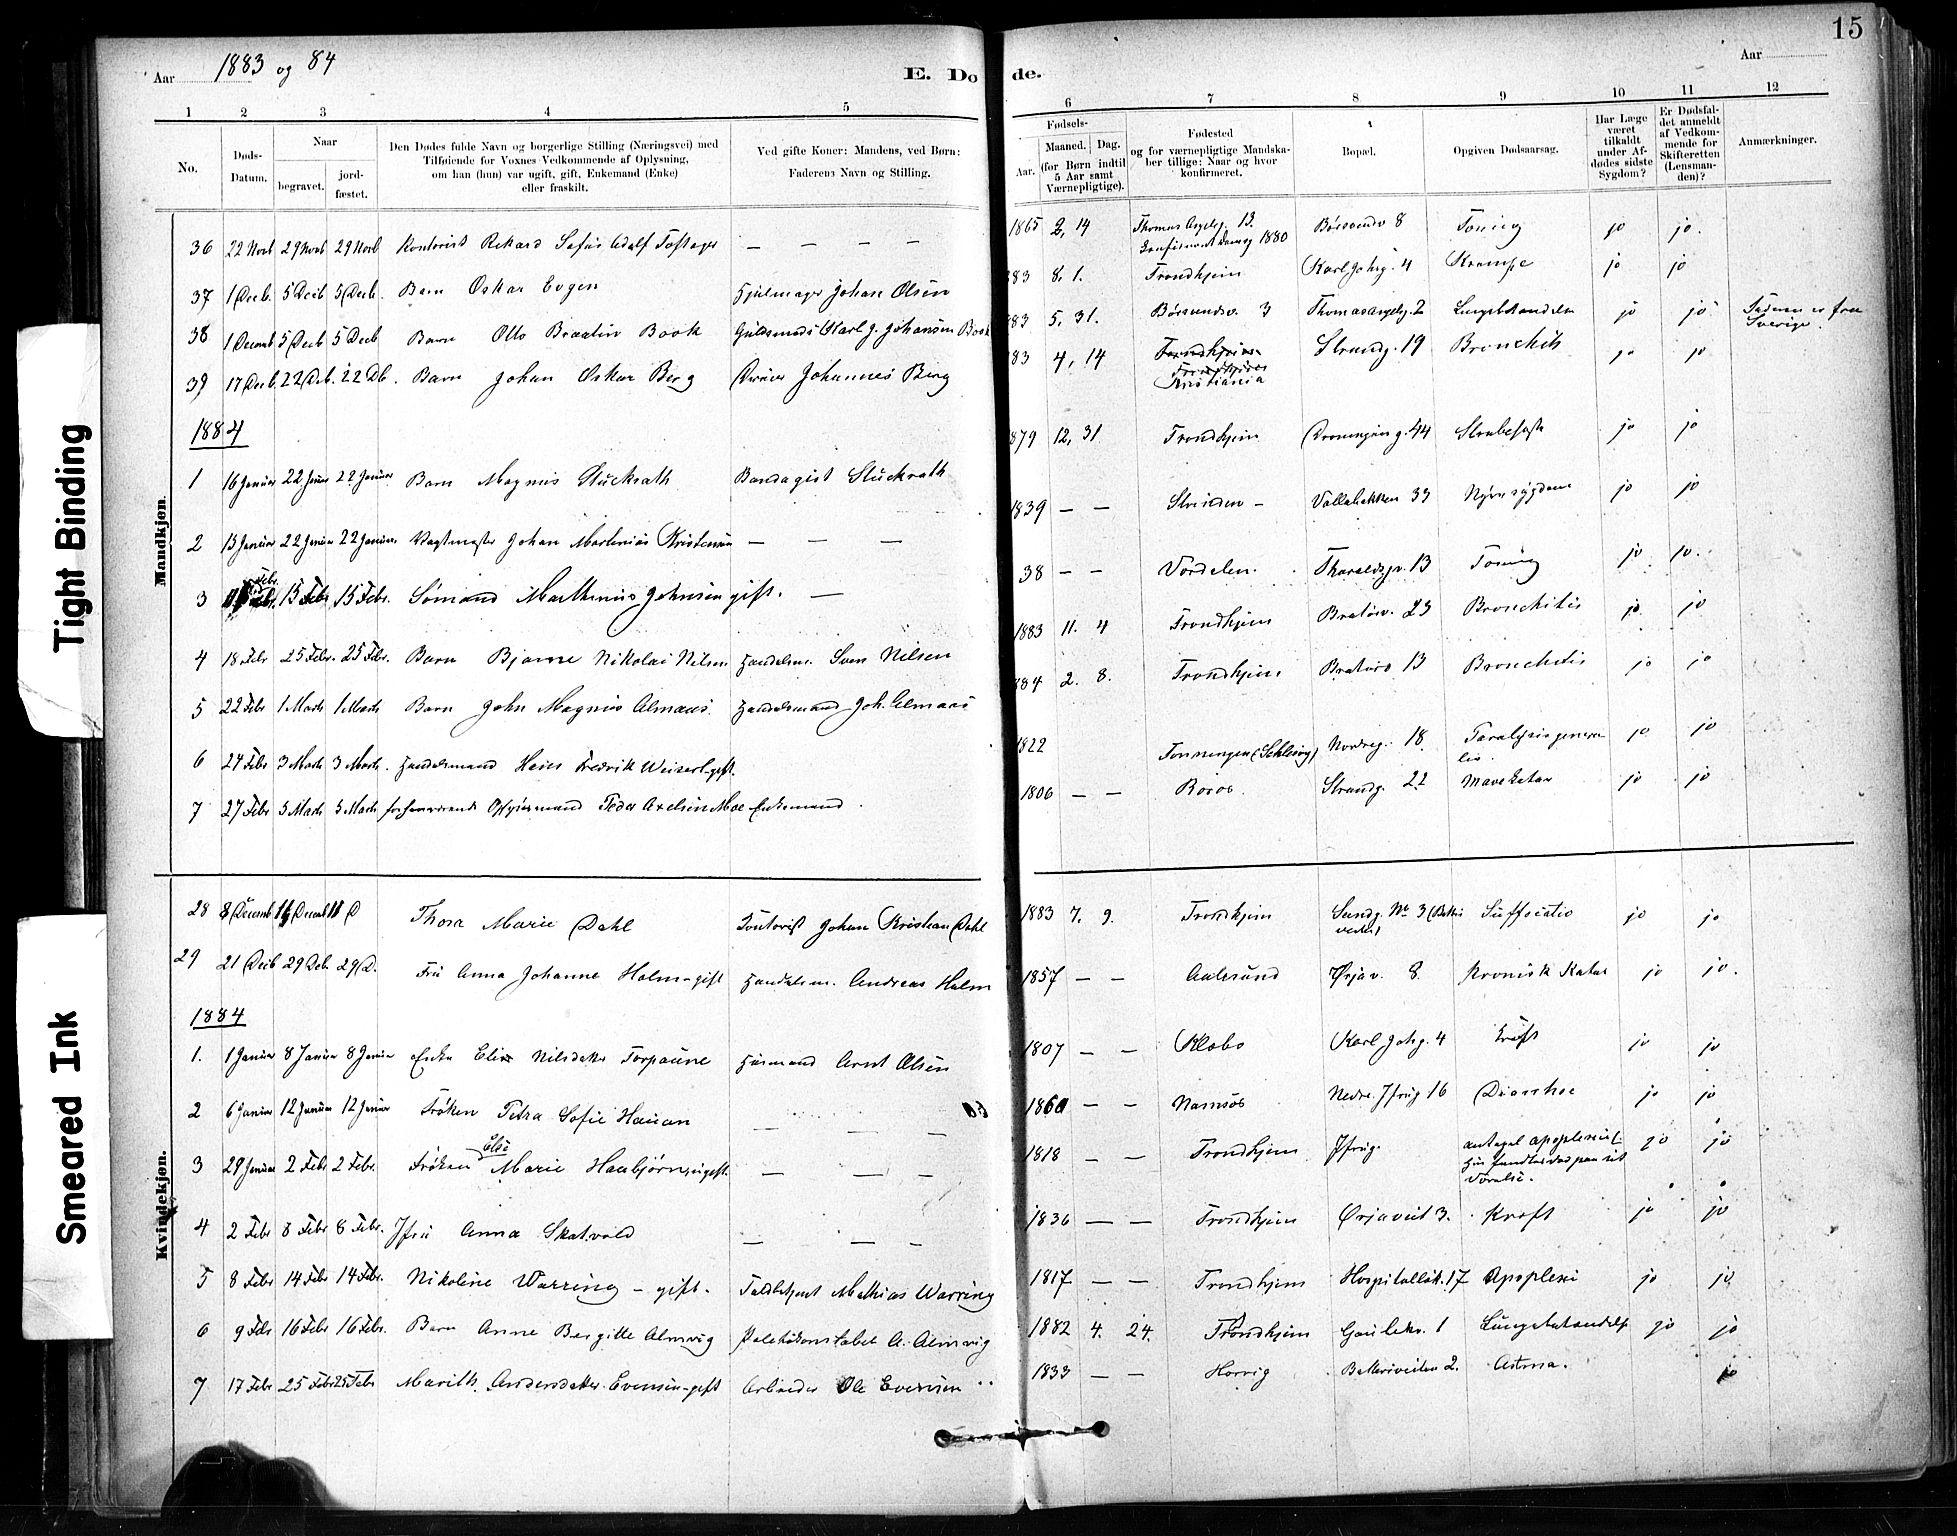 15
Aar 1883 og 84
E. Dode.
Aar
1 2 3 4 5 6 7 8 9 10 11 12
No.
Døds-Datum.
Naar
begravet.
jord-fæstet.
Den Dødes fulde Navn og borgerlige Stilling (Næringsvei) med
Tilføiende for Voxnes Vedkommende af Oplysning,
om han (hun) var ugift, gift, Enkemand (Enke)
eller fraskilt.
Ved gifte Koner: Mandens, ved Børn:
Faderens Navn og Stilling.
Fødsels-
Aar.
Maaned. Dag.
(for Børn indtil
5 Aar samt
Værnepligtige).
Fødested
og for værnepligtige Mandska-
ber tillige: Naar og hvor
konfirmeret.
Bopæl.
Opgiven Dødsaarsag.
Har Læge
været
tilkaldt
under Af-
dødes sidste
Sygdom?
Er Dødsfal-
det anmeldt
af Vedkom-
mende for
Skifteretten
(Lensman-
den)?
Anmærkninger.
Mandkjøn.
36 22 Novb 29 Novb 29 Novb Kontorist Rikard Sofus Adolf — — — — 1865 2, 14 13. 1880 8 jo jo.
37 1 Decb. 5 Decb 5 Decb. Barn Oskar Eugen Hjulmager Johan Olsen 83 8. 1. Trondhjem Karl Johsg. 4 Krampe jo jo
38 1 Decemb 5 Decb 5 Decb Barn Otto Braatin Book Guldsmeds Karl J. Johansen Book 83 5, 31. 3 2 jo jo Faderen er fra
Sverige.
39 17 Decb. 22 Deb. 22 Db. Barn Johan Oskar Berg Johannes Berg 83 4, 14 Kristiania Strandg. 19 Bronchit jo jo
1884
1 16 Januar 22 Januar 22 Januar Barn Magnus Stuckrath Bandagist Stuckrath 879 12, 31 Trondhjem Dronningens g. 44 Strubehoste jo jo
2 13 Januar 22 Januar 22 Januar Vagtmester Johan Martinius Kristensen — — — 1839 — — Strinden – Vollabakken 33 Nyresygdom jo jo
3 Febr. 15 Febr 15 Febr. Sømand Marthinus Johnsen gift. — 38 — — Værdalen. 13 Tæring jo jo.
4 18 Febr 25 Febr. 25 Febr. Barn Bjarne Nikolai Nilsen Handelsm. Sven Nilsen 1883 11. 4 Trondhjem Bratørv. 23 Bronchitis jo jo
5 22 Febr 1 Marts 1 Marts Barn John Magnus Almaas. Handelsmand Joh. Almaas 884 2. 8. Trondhjem 13 Bronchitis jo jo
6 24 Febr 3 Marts 3 Marts. Handelsmand Hans Fredrik Weisert gift. 1822 Tonningen (Schlesvig) Nordreg. 18 Paralysis genera-
lis. jo jo
7 27 Febr 5 Marts 5 Marts forhenværende Opsynsmand Peder Axelsen Moe Enkemand. 1806 — — Røros. Strandg. 22 Mavekatar jo jo
Kvindekjøn.
28 8 Decemb Decemb D Thora Marie Dahl Kontorist Johan Kristian Dahl 1883 7. 9. Trondhjem Sandg. No 3 (Batteri
veiten) Suffocatio jo jo
29 21 Decb 29 Deb. 29 D. Fru Anna Johanne Holm – gift Handelsm. Andreas Holm 1857 — — Aalesund Ørjav. 8 Kronisk Katar jo jo.
1884
1. 1 Januar 8 Januar 8 Januar Enke Elin Nilsdatter Torpaune Husmand Arnt Olsen 1807 — — Klæbo Karl Johsg. 4 Kræft jo jo
2 6 Januar 12 Januar 12 Januar Frøken Petra Sofie Hauan — — — 1860 — — Namsos Nedre Jfrug 16 Diarrhoe jo jo
3 28 Januar 2 Febr 2 Febr. Frøken Else Marie Haubjørn ugift. — — — 1818 — — Trondhjem Jfrug. antagel. apoplexi
hun fandtes død paa sit
Værelse. jo jo
4 2 Febr 8 Febr 8 Febr. Jfru Anna Skatvold — — — 1836 — — Trondhjem Ørjaveit 3. Kræft jo jo
5 8 Febr 14 Febr 14 Febr. Nikoline Warring – gift. Mathias Warring 1817 — — Trondhjem Hospitalløk. 17 Apoplexi jo jo
6 9 Febr 16 Febr 16 Febr. Barn Anne Bergitte Almvig Politikonstabel A. Almvig 1882 4. 24. Trondhjem Gaulekv. 1 Lungebetændelse jo jo
7 17 Febr 25 Febr 25 Febr Marith Andersdatter Evensen – gift Arbeider Ole Evensen 1833 — — Horvig Batteriveiten 2. Astma. jo
Tight Binding
Smeared Ink